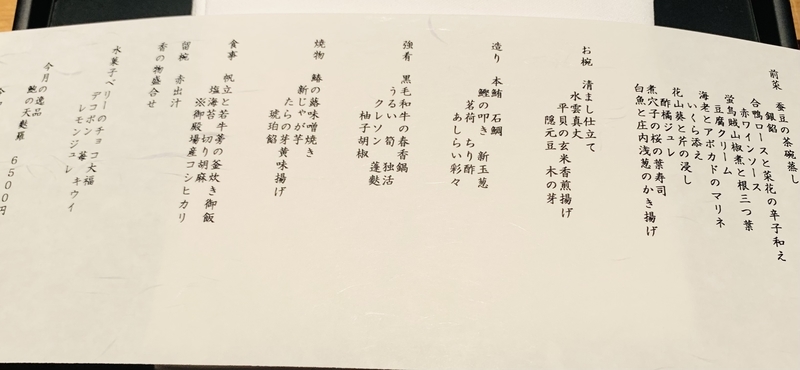 前菜 蚕豆の茶碗蒸し
銀餡
合鴨ロースと菜花の辛子和え
赤ワインソース
蛍烏賊山椒煮と根三つ葉
豆腐クリーム
海老とアボカドのマリネ
いくら添え
花山葵と芹の浸し
酢橘ジュレ
煮穴子の桜の葉寿司
白魚と庄内浅葱のかき揚げ
お椀 清まし仕立て
水雲真丈
平貝の玄米香煎揚げ
隠元豆 木の芽
造り 本鮪 石鯛
鰹の叩き 新玉葱
茗荷 ちり酢
あしらい彩々
強肴 黒毛和牛の春香鍋
うるい 筍 独活
クレソン 蓬麩
柚子胡椒
焼物 鰆の蕗味噌焼き
新じゃが芋
たらの芽黄味揚げ
琥珀餡
食事 帆立と若牛蒡の釜炊き御飯
塩海苔 切り胡麻
※御殿場産コシヒカリ
留椀 赤出汁
香の物盛合せ
水菓子 ベリーのチョコ大福
デコポン 苺 キウイ
レモンジュレ
今月の逸品
鮑の天麩羅 6500円